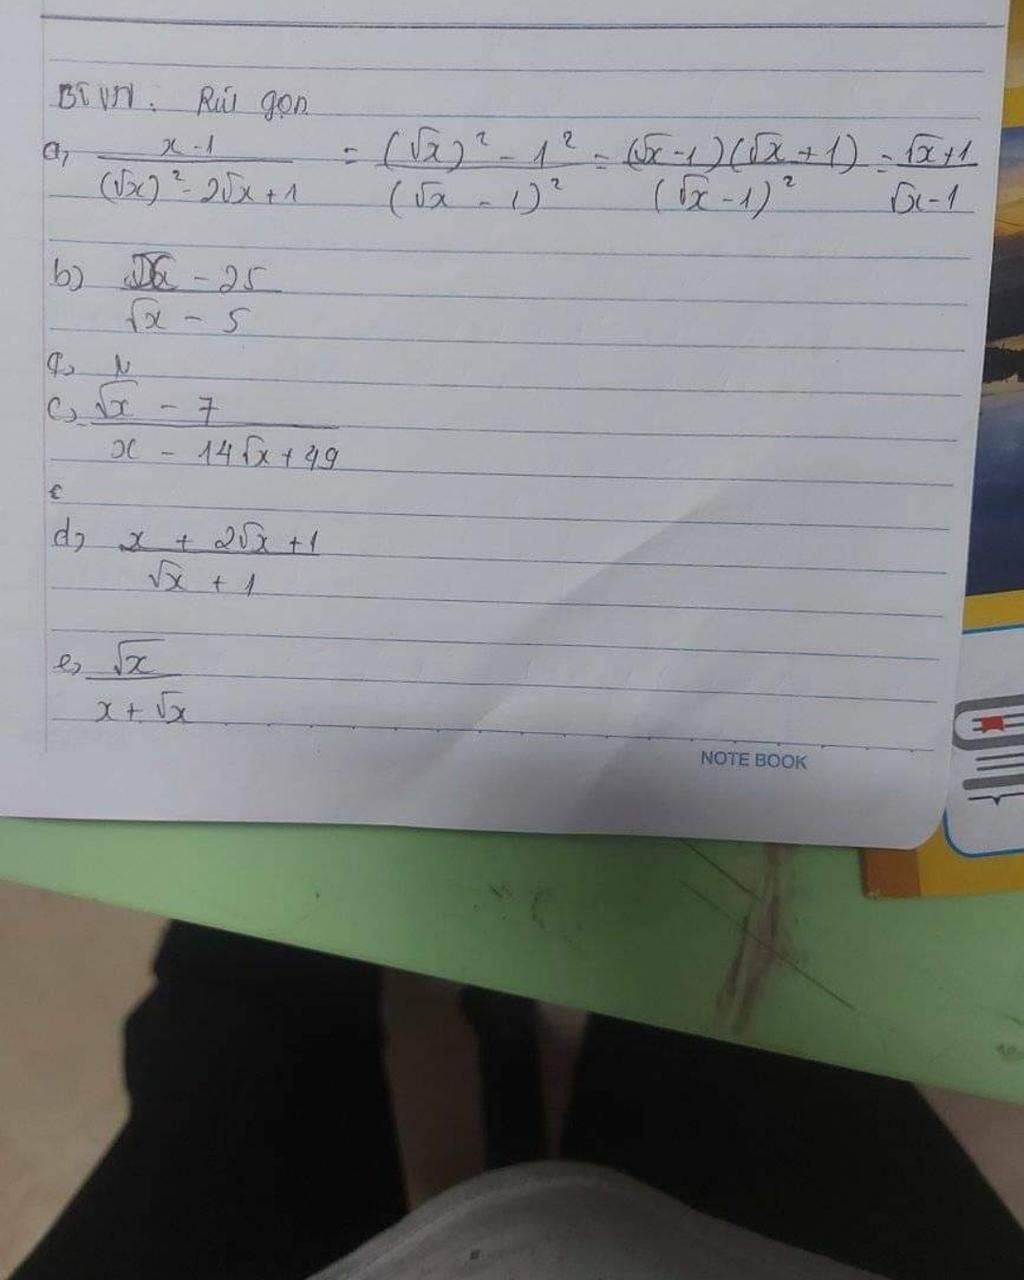 BTVN: Rút gọn
a, x-1 / (√x)² - 2√x + 1 = (√x)² - 1² / (√x - 1)² = (√x-1)(√x+1) / (√x-1)² = √x+1 / √x-1
b) x - 25 / √x - 5
c, √x - 7 / x - 14√x + 49
d, x + 2√x + 1 / √x + 1
e, √x / x + √x
NOTE BOOK